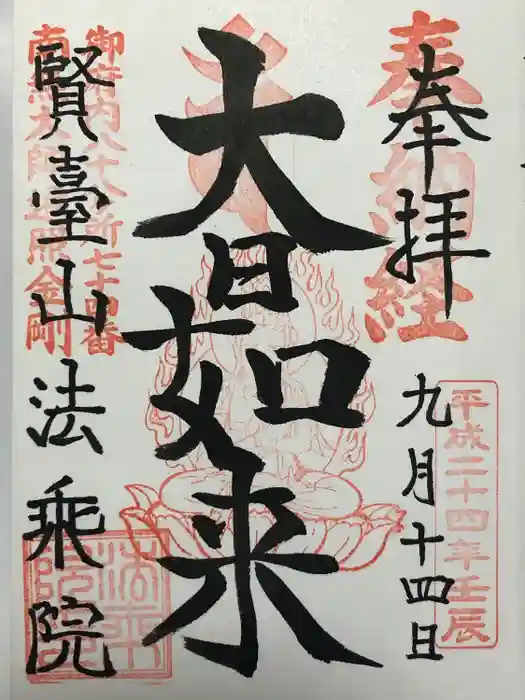 奉拝
奉納経
平成二十四年壬辰
九月十四日
大日如来
御府内八十八ヶ所七十四番
南無大師遍照金剛
賢臺山法乗院